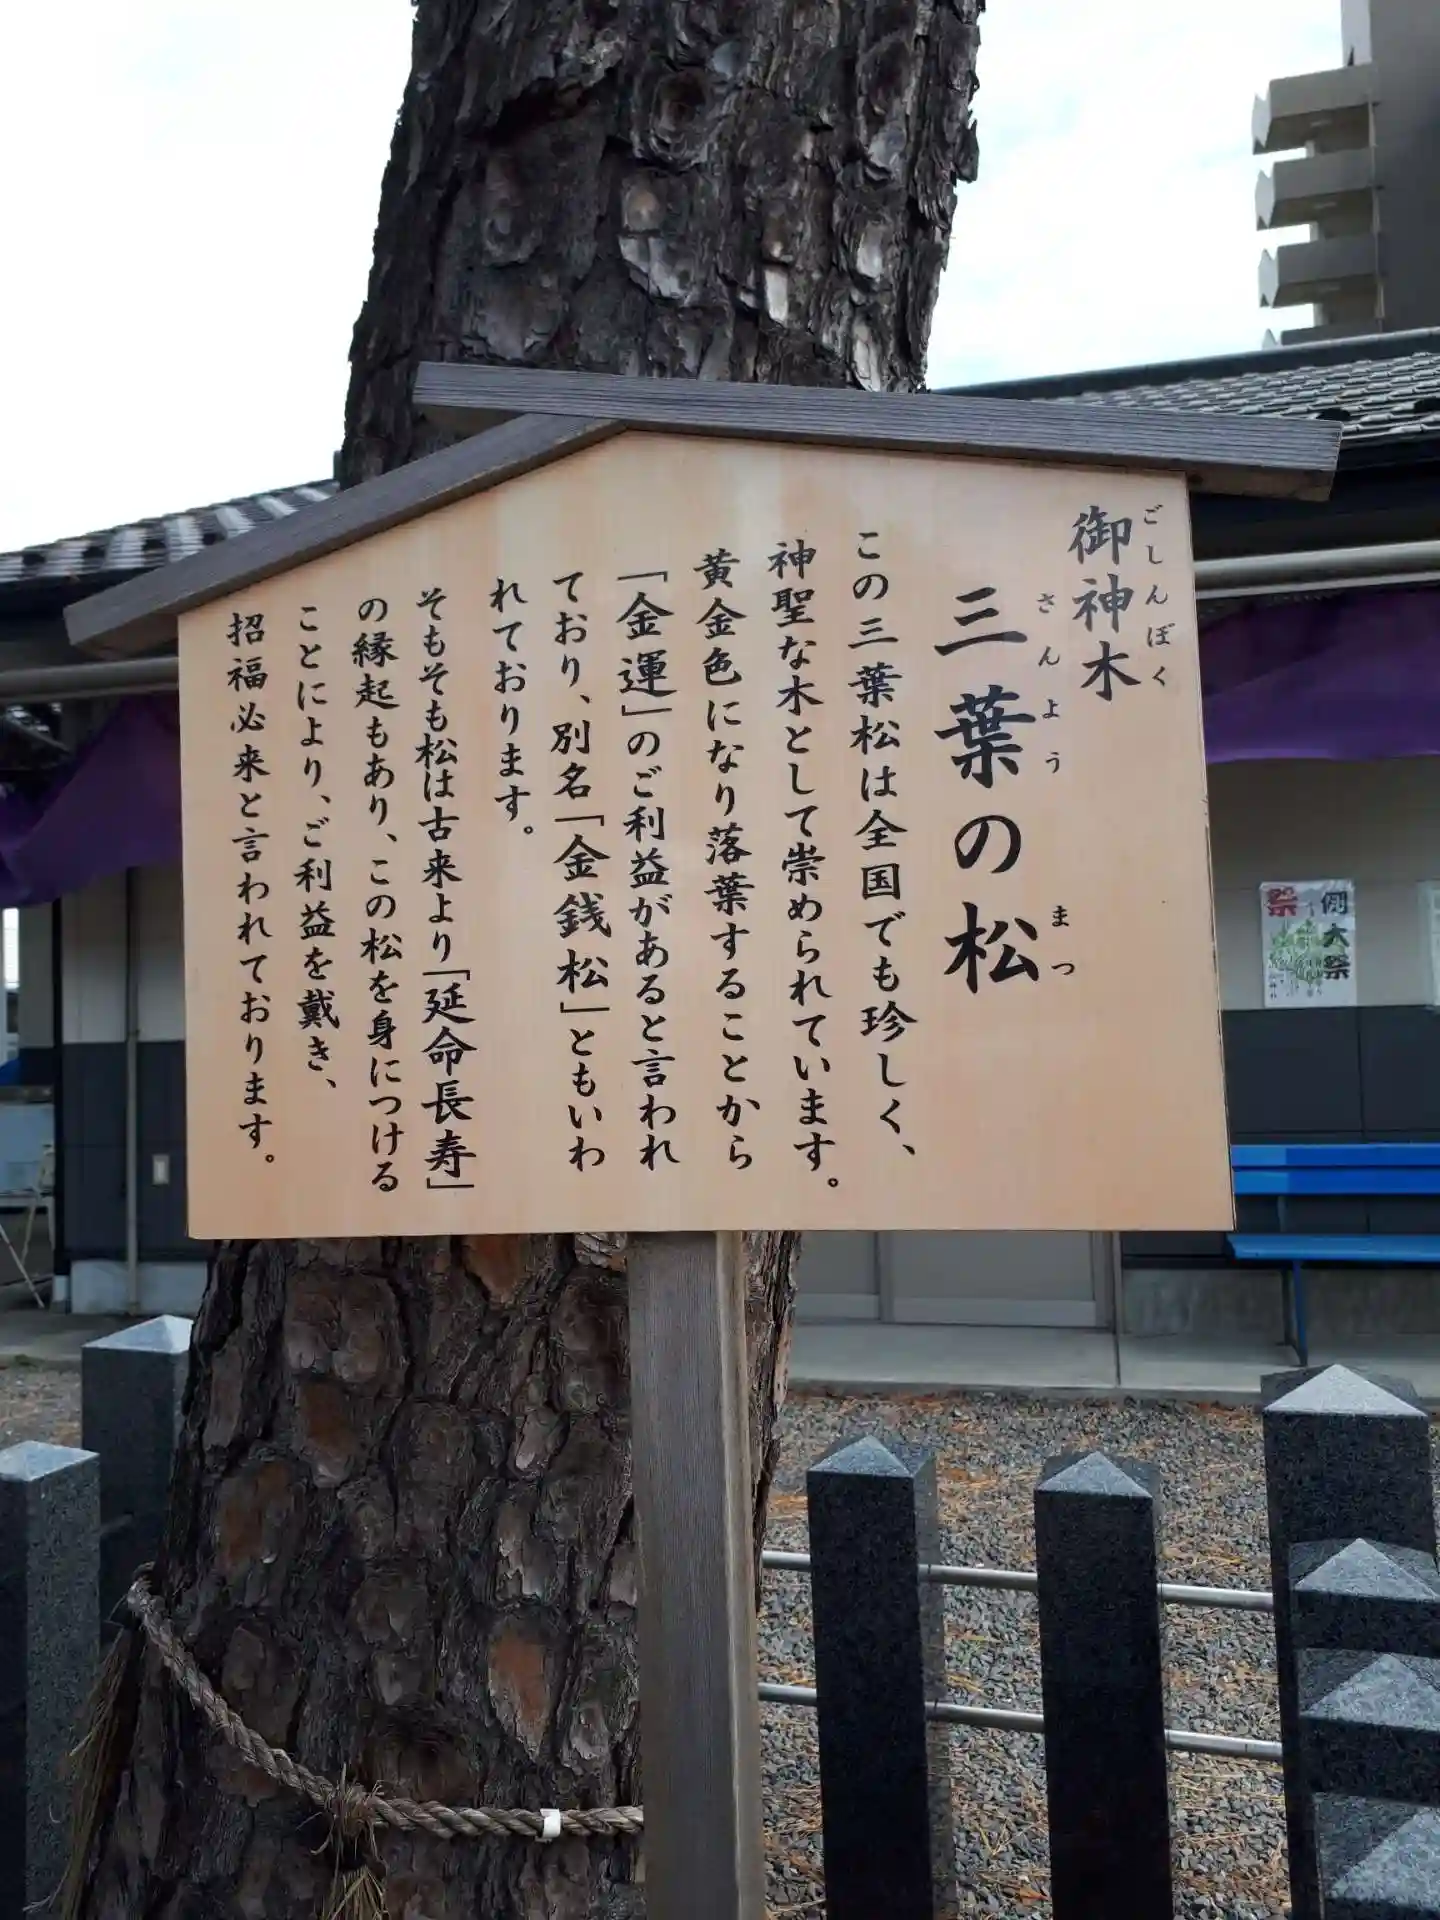 御神木
ごしんぼく
三葉の松
さんよう まつ
この三葉松は全国でも珍しく、
神聖な木として崇められています。
黄金色になり落葉することから
「金運」のご利益があると言われ
ており、別名「金銭松」ともいわ
れております。
そもそも松は古来より「延命長寿」
の縁起もあり、この松を身につける
ことにより、ご利益を戴き、
招福必来と言われております。
例大祭
祭